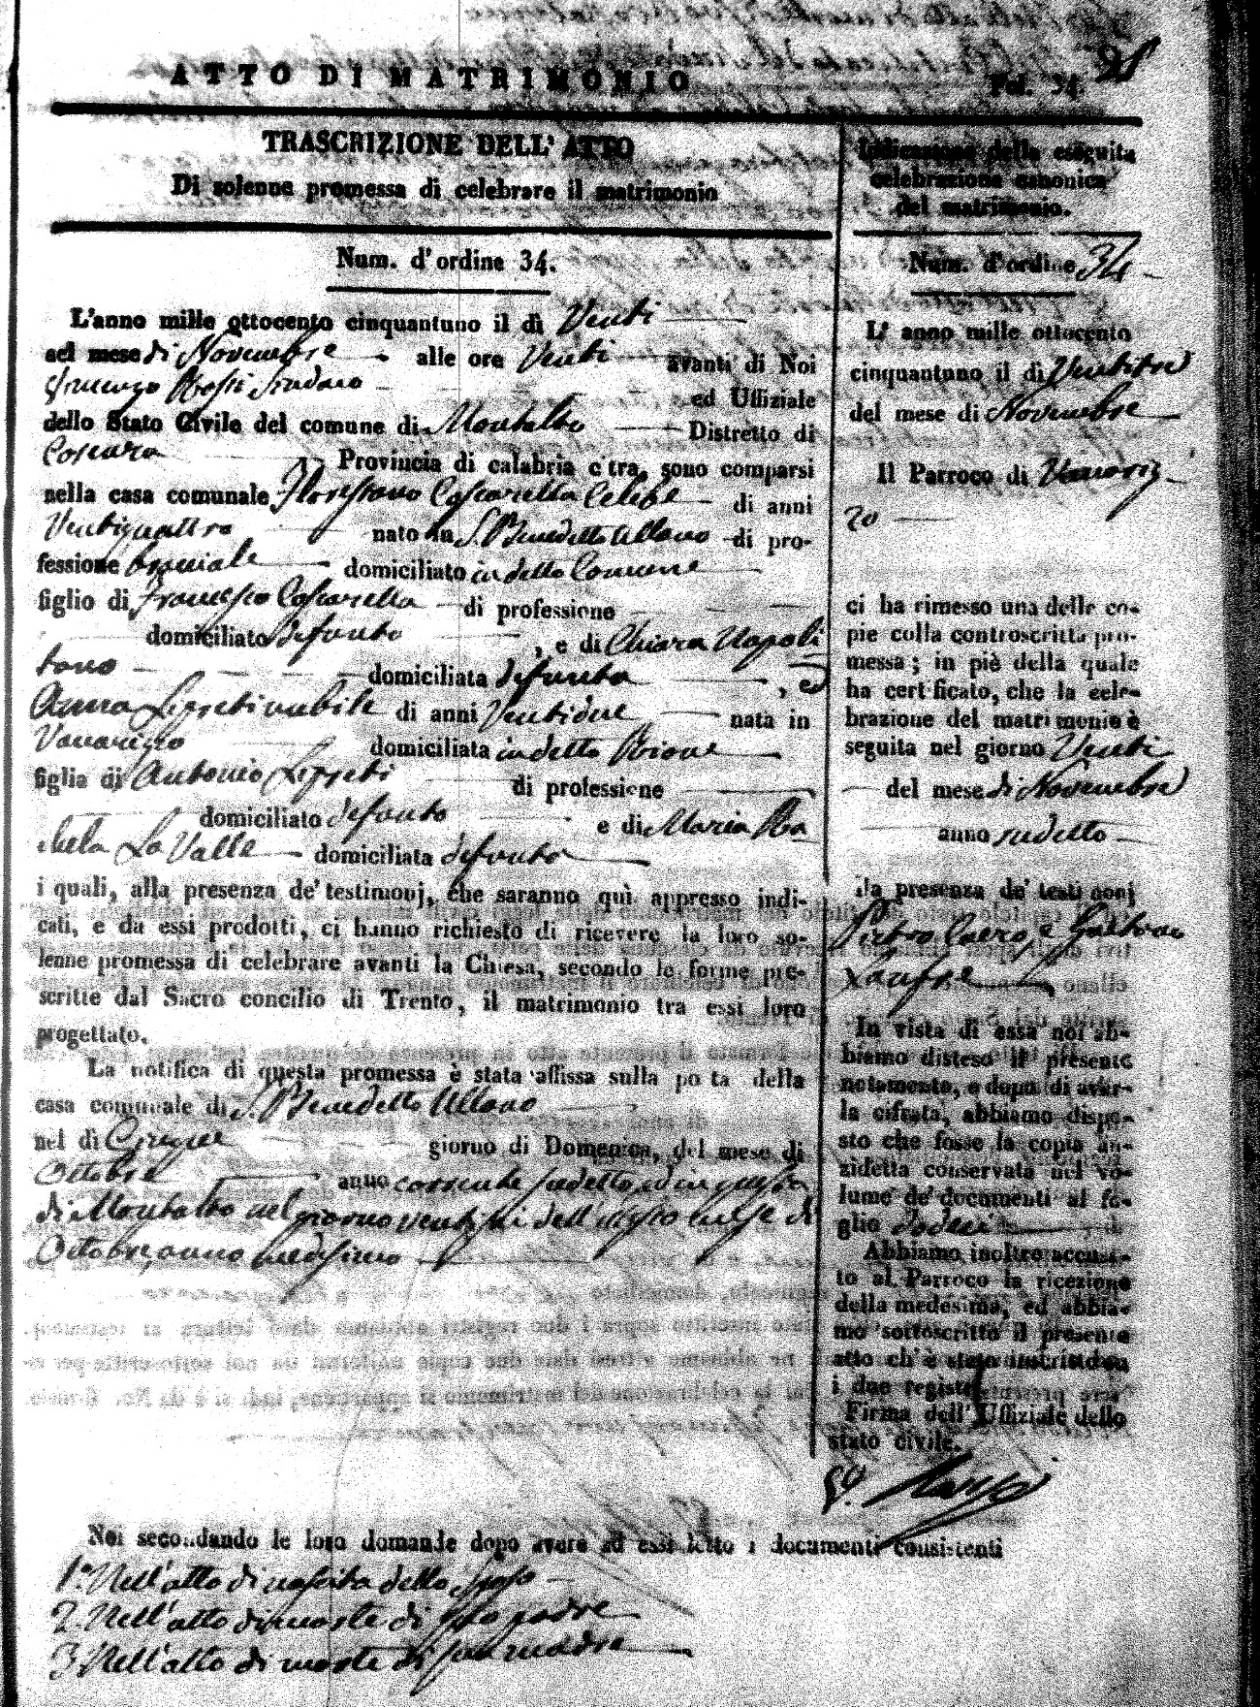 ATTO DI MATRIMONIO
Fol. 34.
TRASCRIZIONE DELL' ATTO
Di solenne promessa di celebrare il matrimonio
Num. d'ordine 34.
L'anno mille ottocento cinquantuno il dì Venti
nel mese di Novembre alle ore Venti avanti di Noi
Rossi Sindaco ed Uffiziale
dello Stato Civile del comune di Montalto Distretto di
Cosenza Provincia di calabria citra, sono comparsi
nella casa comunale Coscarella Celibe di anni
Ventiquattro nato in S. Benedetto Ullano di pro-
fessione bracciale domiciliato in detto Comune
figlio di Francesco Coscarella di professione
domiciliato defonto , e di Chiara Napoli
tano domiciliata defonta , ed
Anna Lippeti nubile di anni Ventidue nata in
Vaccarizzo domiciliata in detto Rione
figlia di Antonio Lippeti di professione
domiciliato defonto e di Maria Ra
chela La Valle domiciliata defonta
i quali, alla presenza de' testimonj, che saranno quì appresso indi-
cati, e da essi prodotti, ci hanno richiesto di ricevere la loro so-
lenne promessa di celebrare avanti la Chiesa, secondo le forme pre-
scritte dal Sacro concilio di Trento, il matrimonio tra essi loro
progettato.
La notifica di questa promessa è stata affissa sulla porta della
casa comunale di S. Benedetto Ullano
nel dì Cinque giorno di Domenica, del mese di
Ottobre anno corrente sudetto, ed in questa
di Montalto nel giorno ventisei dell'istesso mese di
Ottobre, anno medesimo
Indicazione della eseguita
celebrazione canonica
del matrimonio.
Num. d'ordine 34
L' anno mille ottocento
cinquantuno il dì Ventitre
del mese di Novembre
Il Parroco di Vaccariz
zo
ci ha rimesso una delle co-
pie colla controscritta pro-
messa; in piè della quale
ha certificato, che la cele-
brazione del matrimonio è
seguita nel giorno Venti
del mese di Novembre
anno sudetto
In presenza de' testimonj
Pietro e Gaetano
In vista di essa noi ab-
biamo disteso il presente
notamento, e dopo di aver-
la cifrata, abbiamo dispo-
sto che fosse la copia an-
zidetta conservata nel vo-
lume de' documenti al fo-
glio
Abbiamo inoltre accusa-
to al Parroco la ricezione
della medesima, ed abbia-
mo sottoscritto il presente
atto ch'è stato inscritto su
i due registri
Firma dell' Uffiziale dello
stato civile.
Noi secondando le loro domande dopo avere ad essi letto i documenti consistenti
1.º Nell'atto di nascita dello sposo
2. Nell'atto di morte di suo padre
3. Nell'atto di morte di sua madre